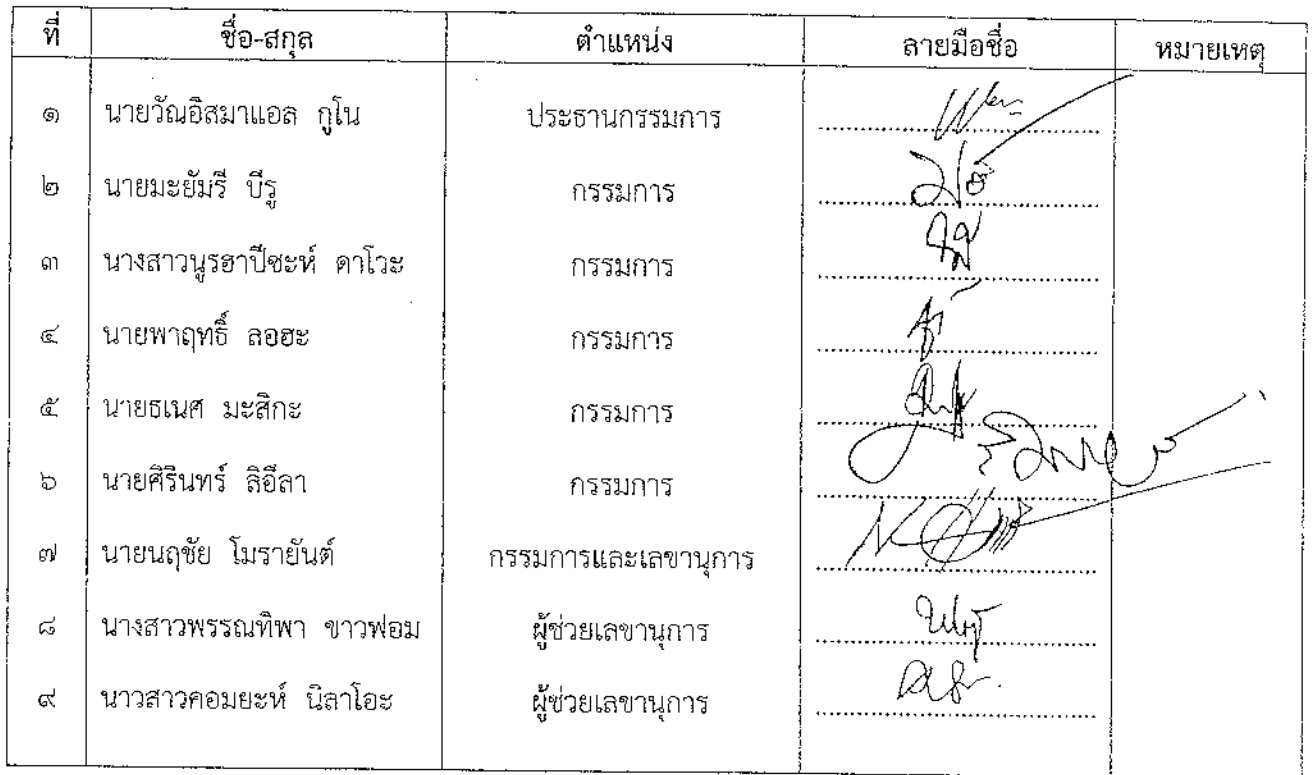 ที่ ชื่อ-สกุล ตำแหน่ง ลายมือชื่อ หมายเหตุ
๑ นายวัณอิสมาแอล กูโน ประธานกรรมการ
๒ นายมะยัมรี บีรู กรรมการ
๓ นางสาวนูรฮาปีซะห์ ดาโวะ กรรมการ
๔ นายพาฤทธิ์ ลอฮะ กรรมการ
๕ นายธเนศ มะสิกะ กรรมการ
๖ นายศิรินทร์ ลิอีลา กรรมการ
๗ นายนฤชัย โมรายันต์ กรรมการและเลขานุการ
๘ นางสาวพรรณทิพา ขาวฟอม ผู้ช่วยเลขานุการ
๙ นาวสาวคอมยะห์ นิลาโอะ ผู้ช่วยเลขานุการ